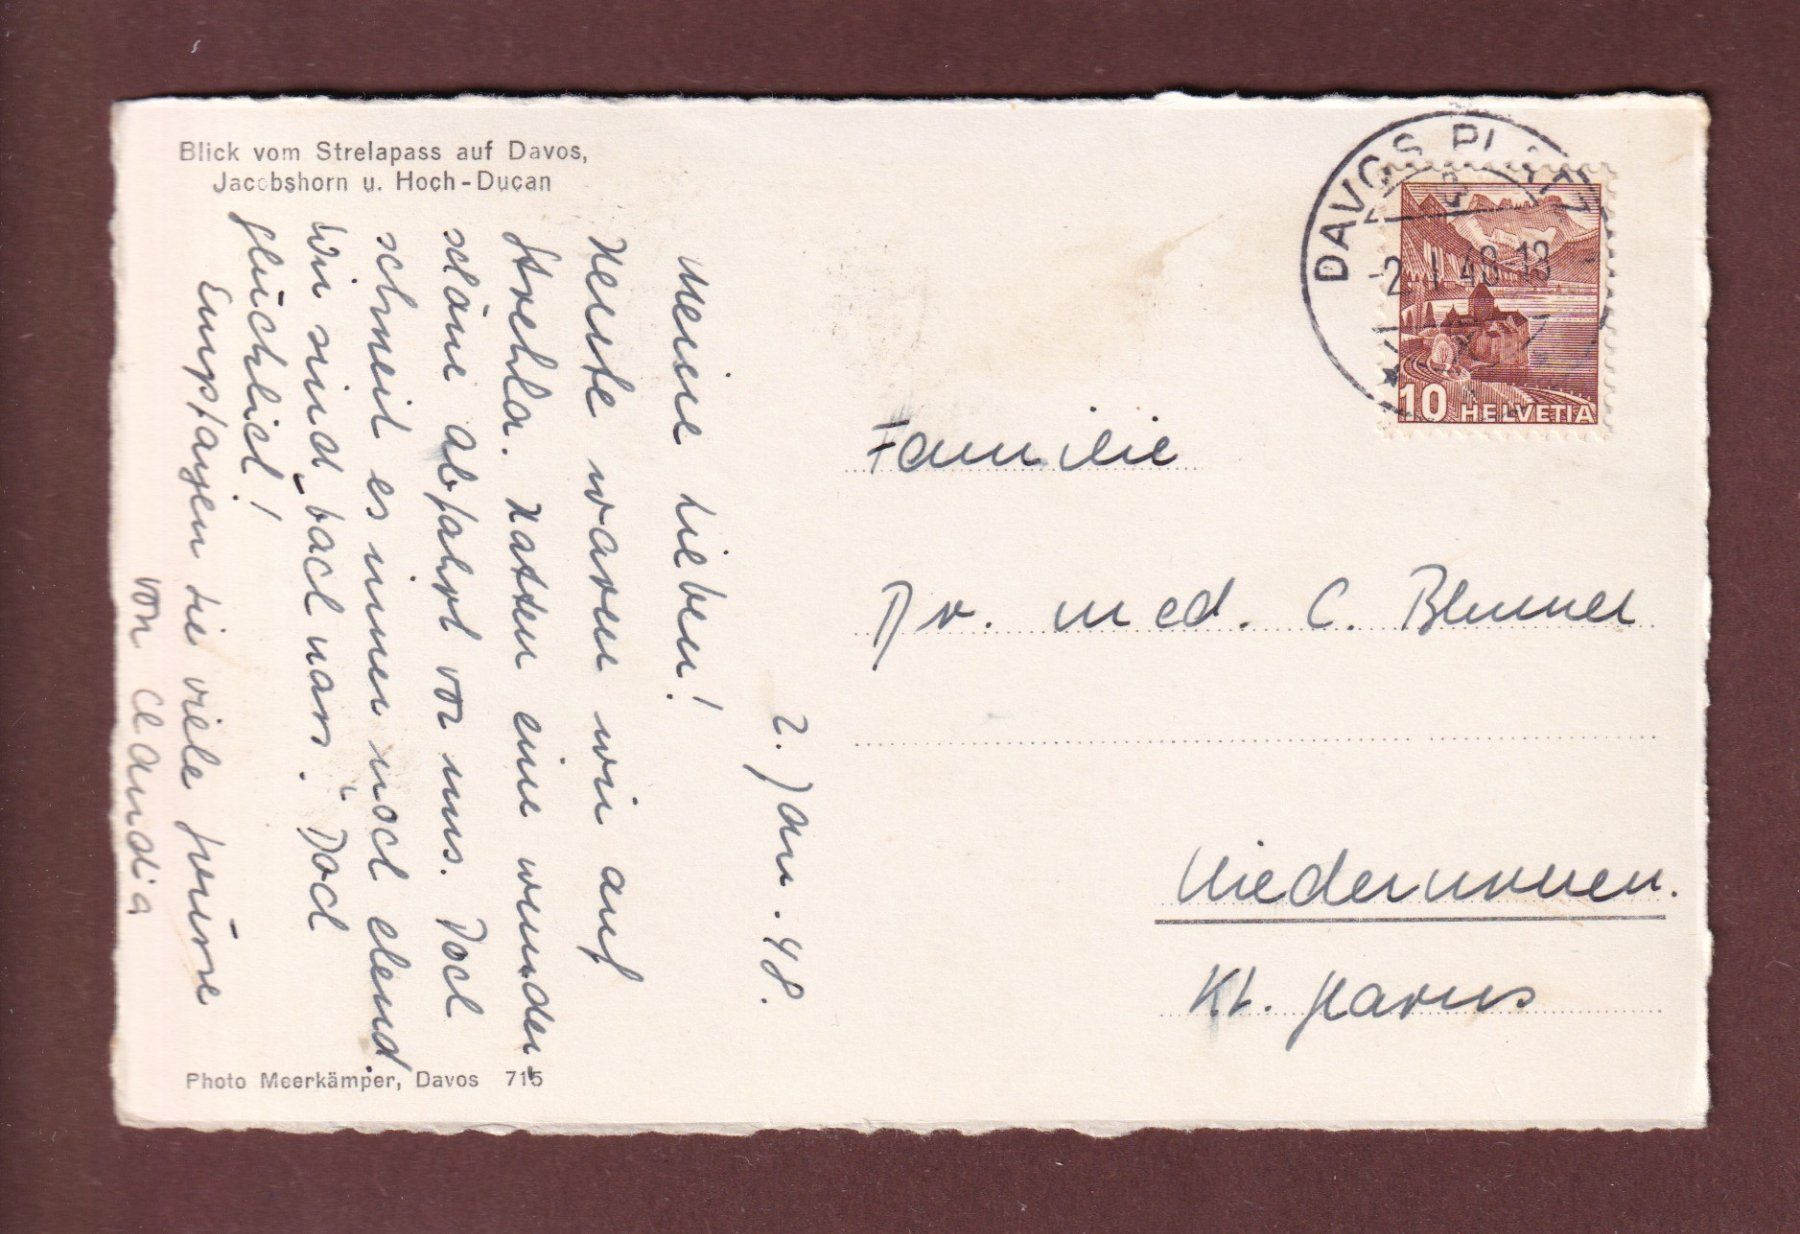 Blick vom Strelapass auf Davos,
Jacobshorn u. Hoch-Ducan
2. Jan. 48.
Meine Lieben!
Heute waren wir auf
Strehla. Hatten eine wunder-
schöne Abfahrt vor uns. Doch
schneit es immer noch elend
wir sind bach nass. Doch
glücklich!
Empfangen Sie viele Grüsse
von Claudia
Photo Meerkämper, Davos 715
DAVOS PLATZ
2. I. 48-13
10 HELVETIA
Familie
Dr. med. C. Blumer
Niederurnen.
Kt. Glarus